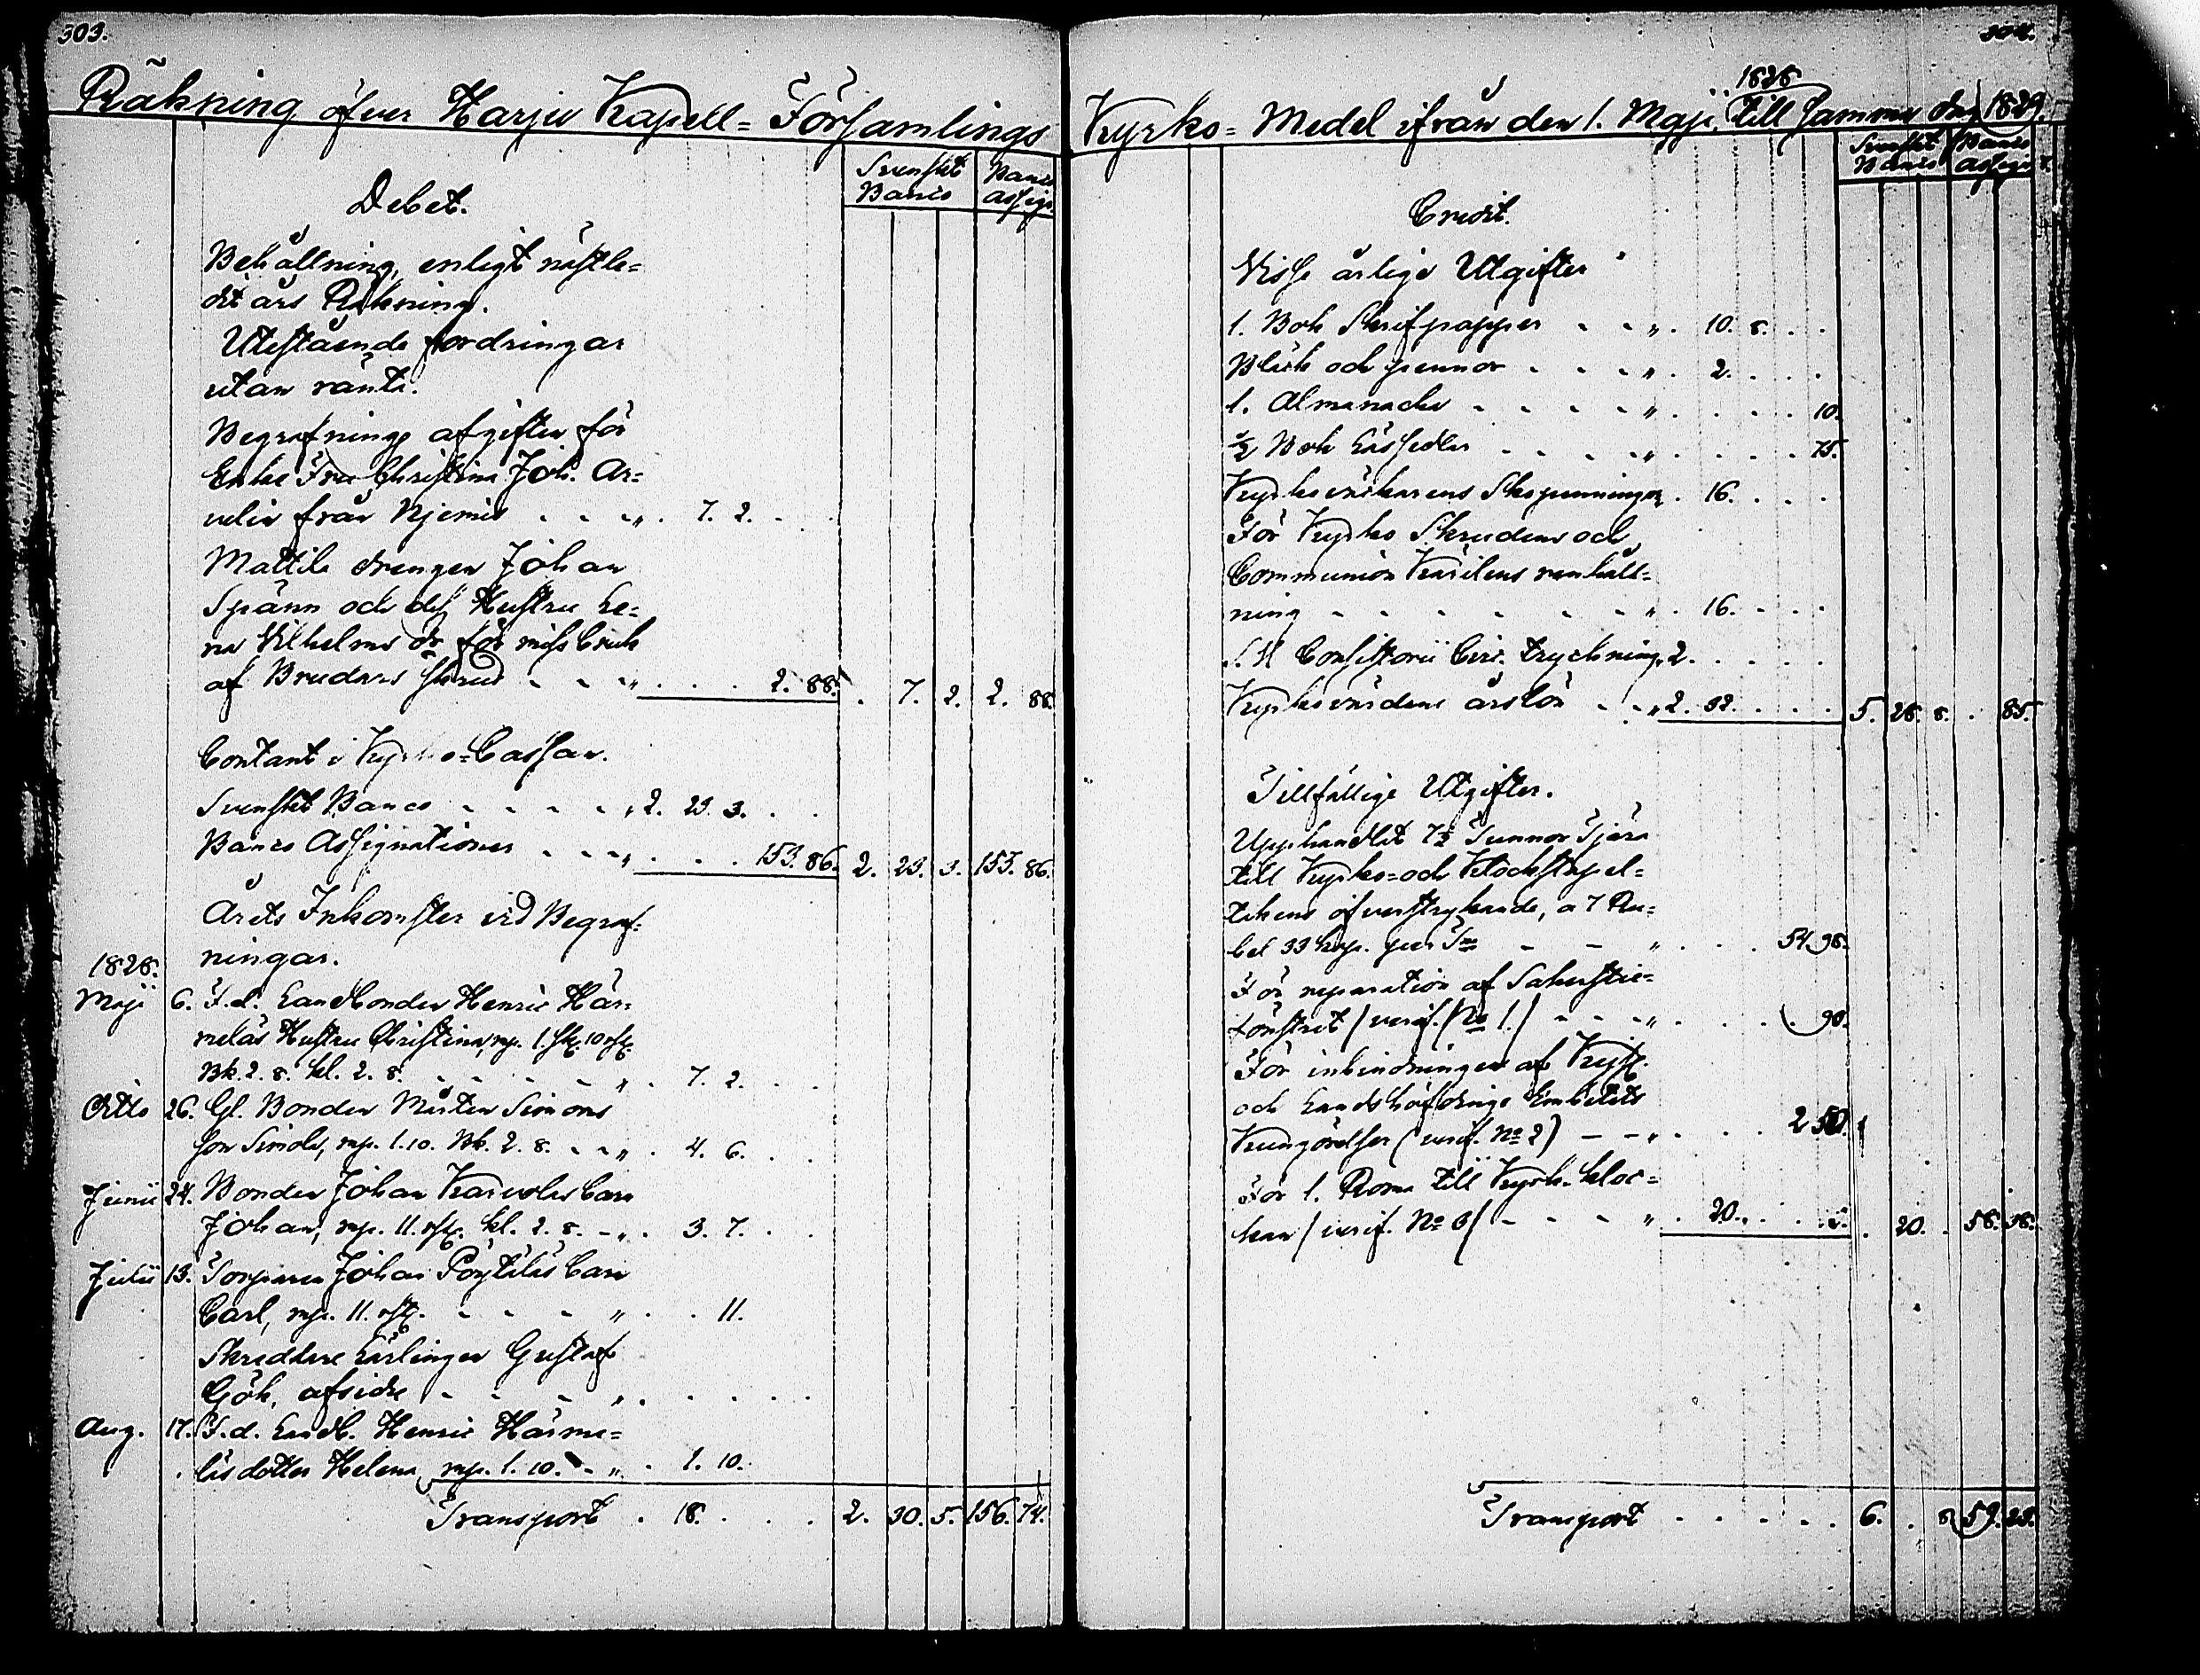 303.
Räkning öfver Harju Kapell=Församlings
Svenskt Banco
Banco Assign.
Debet.
Behållning, enligt nästle=
dit års Räkning.
Utestående fordringar
utan ränta.
Begrafnings afgifter för
Enke Fru Christina Joh. Ar=
velin från Njemis - - - „ . 7. 2. . .
Mattila drengen Johan
Spänn och dess Hustru Le=
na Vilhelms dr för missbruk
af Brudars skrud - - - „ . . . 2. 88. . 7. 2. 2. 88.
Contant i Kyrko=Cassan.
Svenskt Banco - - - - - „ 2. 23. 3. . .
Banco Assignationer - - - „ . . . 153. 86. 2. 23. 3. 153. 86.
Årets Inkomster vid Begraf=
1828. ningar.
Maji 6. F.d. Landbonden Henric Här=
meläs Hustru Christina, mp. 1. sk. 10 rst.
Bk. 2. 8. kl. 2. 8. - - - - - „ . 7. 2. . .
Ditto 26. Gl. Bonden Mårten Simons
son Simola, mp. 1. 10. Bk. 2. 8. - - „ . 4. 6. . .
Junii 24. Bonden Johan Karvolas barn
Johan, mp. 11. rst. kl. 2. 8. - „ . 3. 7. . .
Julii 13. Torparen Johan Pöytäläs barn
Carl, mp. 11. rst. - - - - „ . . 11.
Skreddare Lärlingen Gustaf
Gök, afsides - - - - „ . . . . .
Aug. 17. F.d. Landb. Henric Härme=
läs dotter Helena, mp. 1. 10. - „ . 1. 10.
Transport . 18. . . . 2. 30. 5. 156. 74.
304.
1828
Kyrko=Medel ifrån den 1. Maji, till samma dag 1829.
Svenskt Banco
Banco Assign.
Credit.
Visse årlige Utgifter
1. Bok Skrifpapper - - „ . 10. 8. . .
Bläck och pennor - - - - „ . 2. . . .
1. Almanacka - - - - - „ . . . . 10.
½ Bok Lässedlar - - - - „ . . . . 75.
Kyrkoväckarens Skopenningar . 16. . . .
För Kyrko Skrudens och
Communion Kärilens renhåll=
ning - - - - - - - „ . 16. . . .
Consistorii Circ. tryckning „ 2. . . . .
Kyrkovärdens årslön - - „ 2. 32. . . . 5. 28. 8. . 85.
Tillfällige Utgifter.
Upphandlat 7½ Tunnor Tjära
till Kyrko=och Klockstapel=
takens öfverstrykande, a 7 Ru=
bel 33 kop. per Tna - - „ . . . 54 98.
För reparation af Sakerstie=
fönstret (verif. No 1.) - - - „ . . . . 90.
För inbindningen af Kejs.
och Landshöfdinge Embetets
Kungörelser (verif. No 2) - - „ . . . 2 50.
För 1. Rem till Kyrk. kloc=
kan (verif. No 3) - - - „ . 20. . . . . . 20. . 58. 38.
Transport - - - - - - 6. . 8. 59. 23.